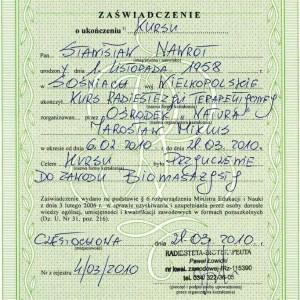 ZAŚWIADCZENIE
o ukończeniu KURSU
Pan STANISŁAW NAWROT
urodzony 1 LISTOPADA 1958
w SOŚNIACH woj. WIELKOPOLSKIE
ukończył KURS RADIESTEZJI TERAPEUTYCZNEJ
zorganizowany przez OŚRODEK "NATURA"
JAROSŁAW MIKLUS
w okresie od 6.02.2010 do 28.03.2010.
Celem KURSU było PRZYUCZENIE
DO ZAWODU BIOMASAŻYSTY
Zaświadczenie wydano na podstawie § 6 rozporządzenia Ministra Edukacji i Nauki
z dnia 3 lutego 2006 r. w sprawie uzyskiwania i uzupełniania przez osoby dorosłe
wiedzy ogólnej, umiejętności i kwalifikacji zawodowych w formach pozaszkolnych
(Dz. U. Nr 31, poz. 216).
CZĘSTOCHOWA 28.03.2010.
RADIESTETA-BIOTERAPEUTA
Paweł Łowicki
nr kwal. zawodowe
Nr z rejestru 4/03/2010